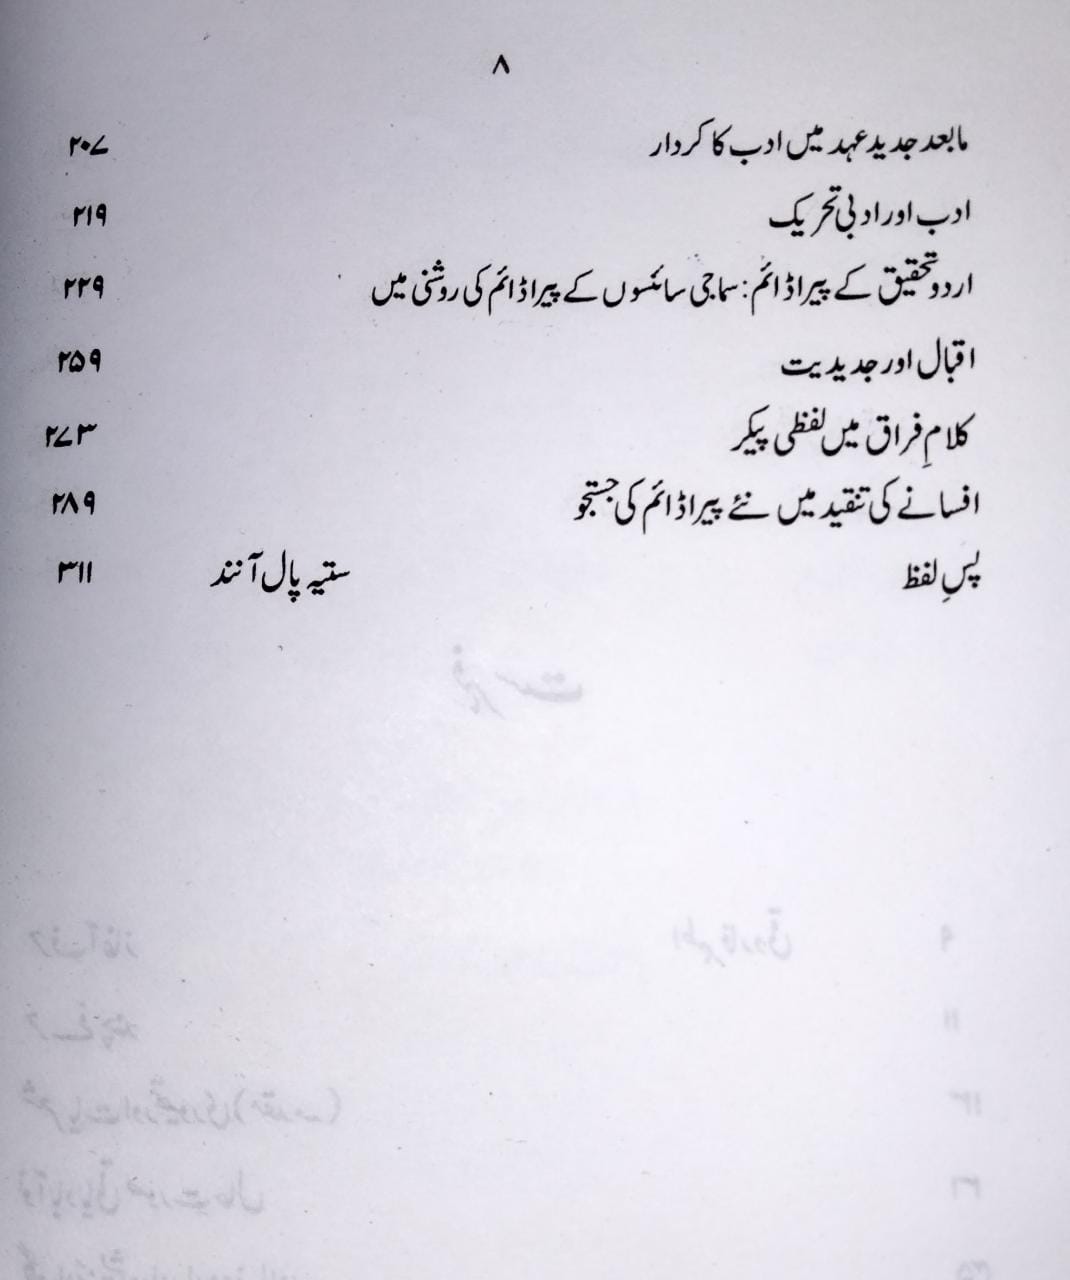 ۸
مابعد جدید عہد میں ادب کا کردار ۲۰۷
ادب اور ادبی تحریک ۲۱۹
اردو تحقیق کے پیراڈائم: سماجی سائنسوں کے پیراڈائم کی روشنی میں ۲۲۹
اقبال اور جدیدیت ۲۵۹
کلامِ فراق میں لفظی پیکر ۲۷۳
افسانے کی تنقید میں نئے پیراڈائم کی جستجو ۲۸۹
پسِ لفظ ستیہ پال آنند ۳۱۱